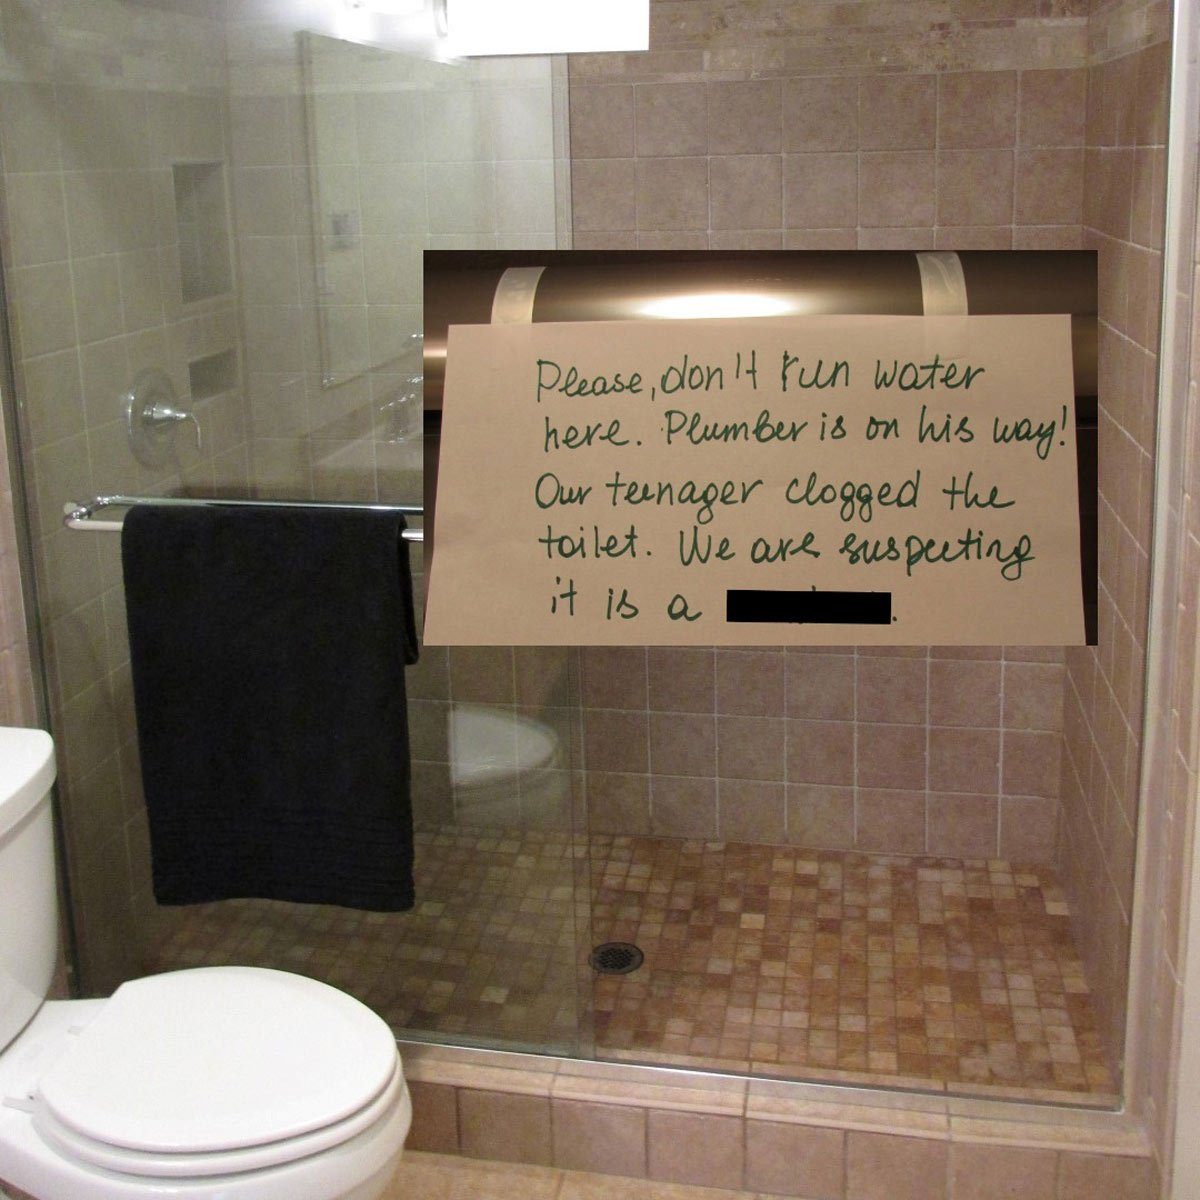 Please, don't run water
here. Plumber is on his way!
Our teenager clogged the
toilet. We are suspecting
it is a .